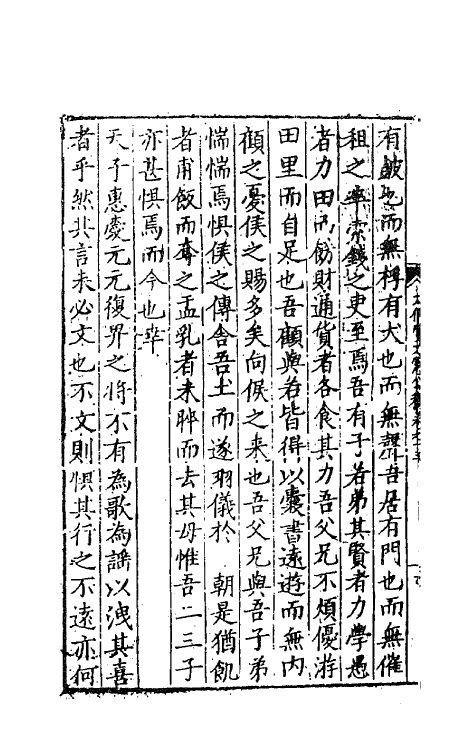 有鼓也而無桴有犬也而無聲吾居有門也而無催
租之率索錢之吏至焉吾有子若弟其賢者力學愚
者力田而餙財通貨者各食其力吾父兄不煩優游
田里而自足也吾顧與若皆得以囊書遠遊而無内
顧之憂侯之賜多矣向侯之來也吾父兄與吾子弟
惴惴焉惧侯之傳舍吾土而遂羽儀於　朝是猶飢
者甫飯而奪之盂乳者未晬而去其母惟吾二三子
亦甚惧焉而今也幸
天子惠憂元元復畀之將不有為歌為謡以洩其喜
者乎然其言未必文也不文則惧其行之不遠亦何